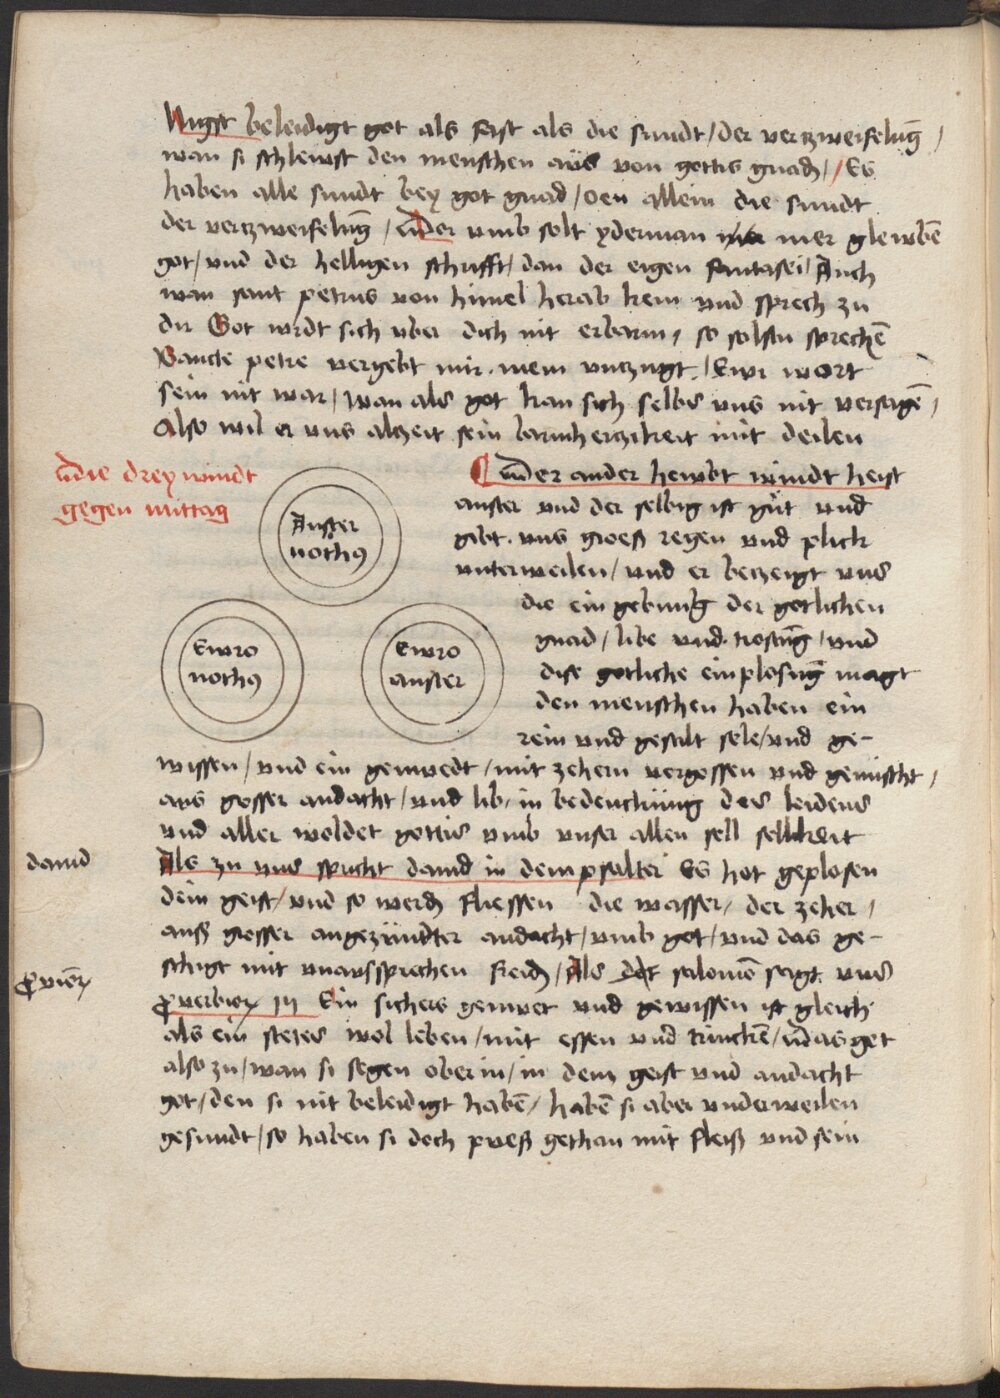 Nigst beleidigt got als fast als die sundt / der verzweifelūg /
wan si schlewst den menschen aüs von gottis gnadē // Es
haben alle sundt bey got gnad / oen allein die sundt
der vertzweifelūg / Der umb solt yderman mer glewbē
got / und der heiligen schrifft / dan der eigen fantasei / Auch
wan sant petrus von himel herab kem und sprech zu
dir Got wirdt sich uber dich nit erbarm / so solstu sprechē
Sancte petre vergebt mir mein untzugt / Ewr wort
sein nit war / wan als got kan sich selbs uns nit versagē /
Also wil er uns altzeit sein barmhertzikeit mit deilen
Die drey windt
gegen mittag
Auster
nothꝰ
Ewro
nothꝰ
Ewro
auster
Der ander hewbt windt heist
auster und der selbig ist güt und
gibt uns groeß regen und plick
unterweilen / und er betzeigt uns
die ein gebung der gotlichen
gnad / libe und trostūg / und
dise gotliche einplosūg magt
den menschen haben ein
rein und gestilt sele / und ge-
wissen / und ein gemuedt / mit zehern vergossen und gemischt /
aus grosser andacht / und lib / in bedenckung des leidens
und aller woldet gottis umb unser allen sell sellikeit
dauid
Als zu uns spricht dauid in dem psalter Es hot geplosen
dein geist / und so werdē fliessen die wasser / der zeher /
auß grosser angezündter andacht / umb got / und das ge-
schigt mit unaussprechen freidē / Als salomō sagt uns
ꝓuerꝫ
ꝓuerbioꝝ iij Ein sichers gemuet und gewissen ist gleich
als ein stetes wol leben / mit essen und trinckē / Das get
also zu / wan si segen ober in / in dem geist und andacht
got / den si nit beleidigt habē / habē si aber underweilen
gesundt / so haben si doch pueß gethan mit fleiß und sein